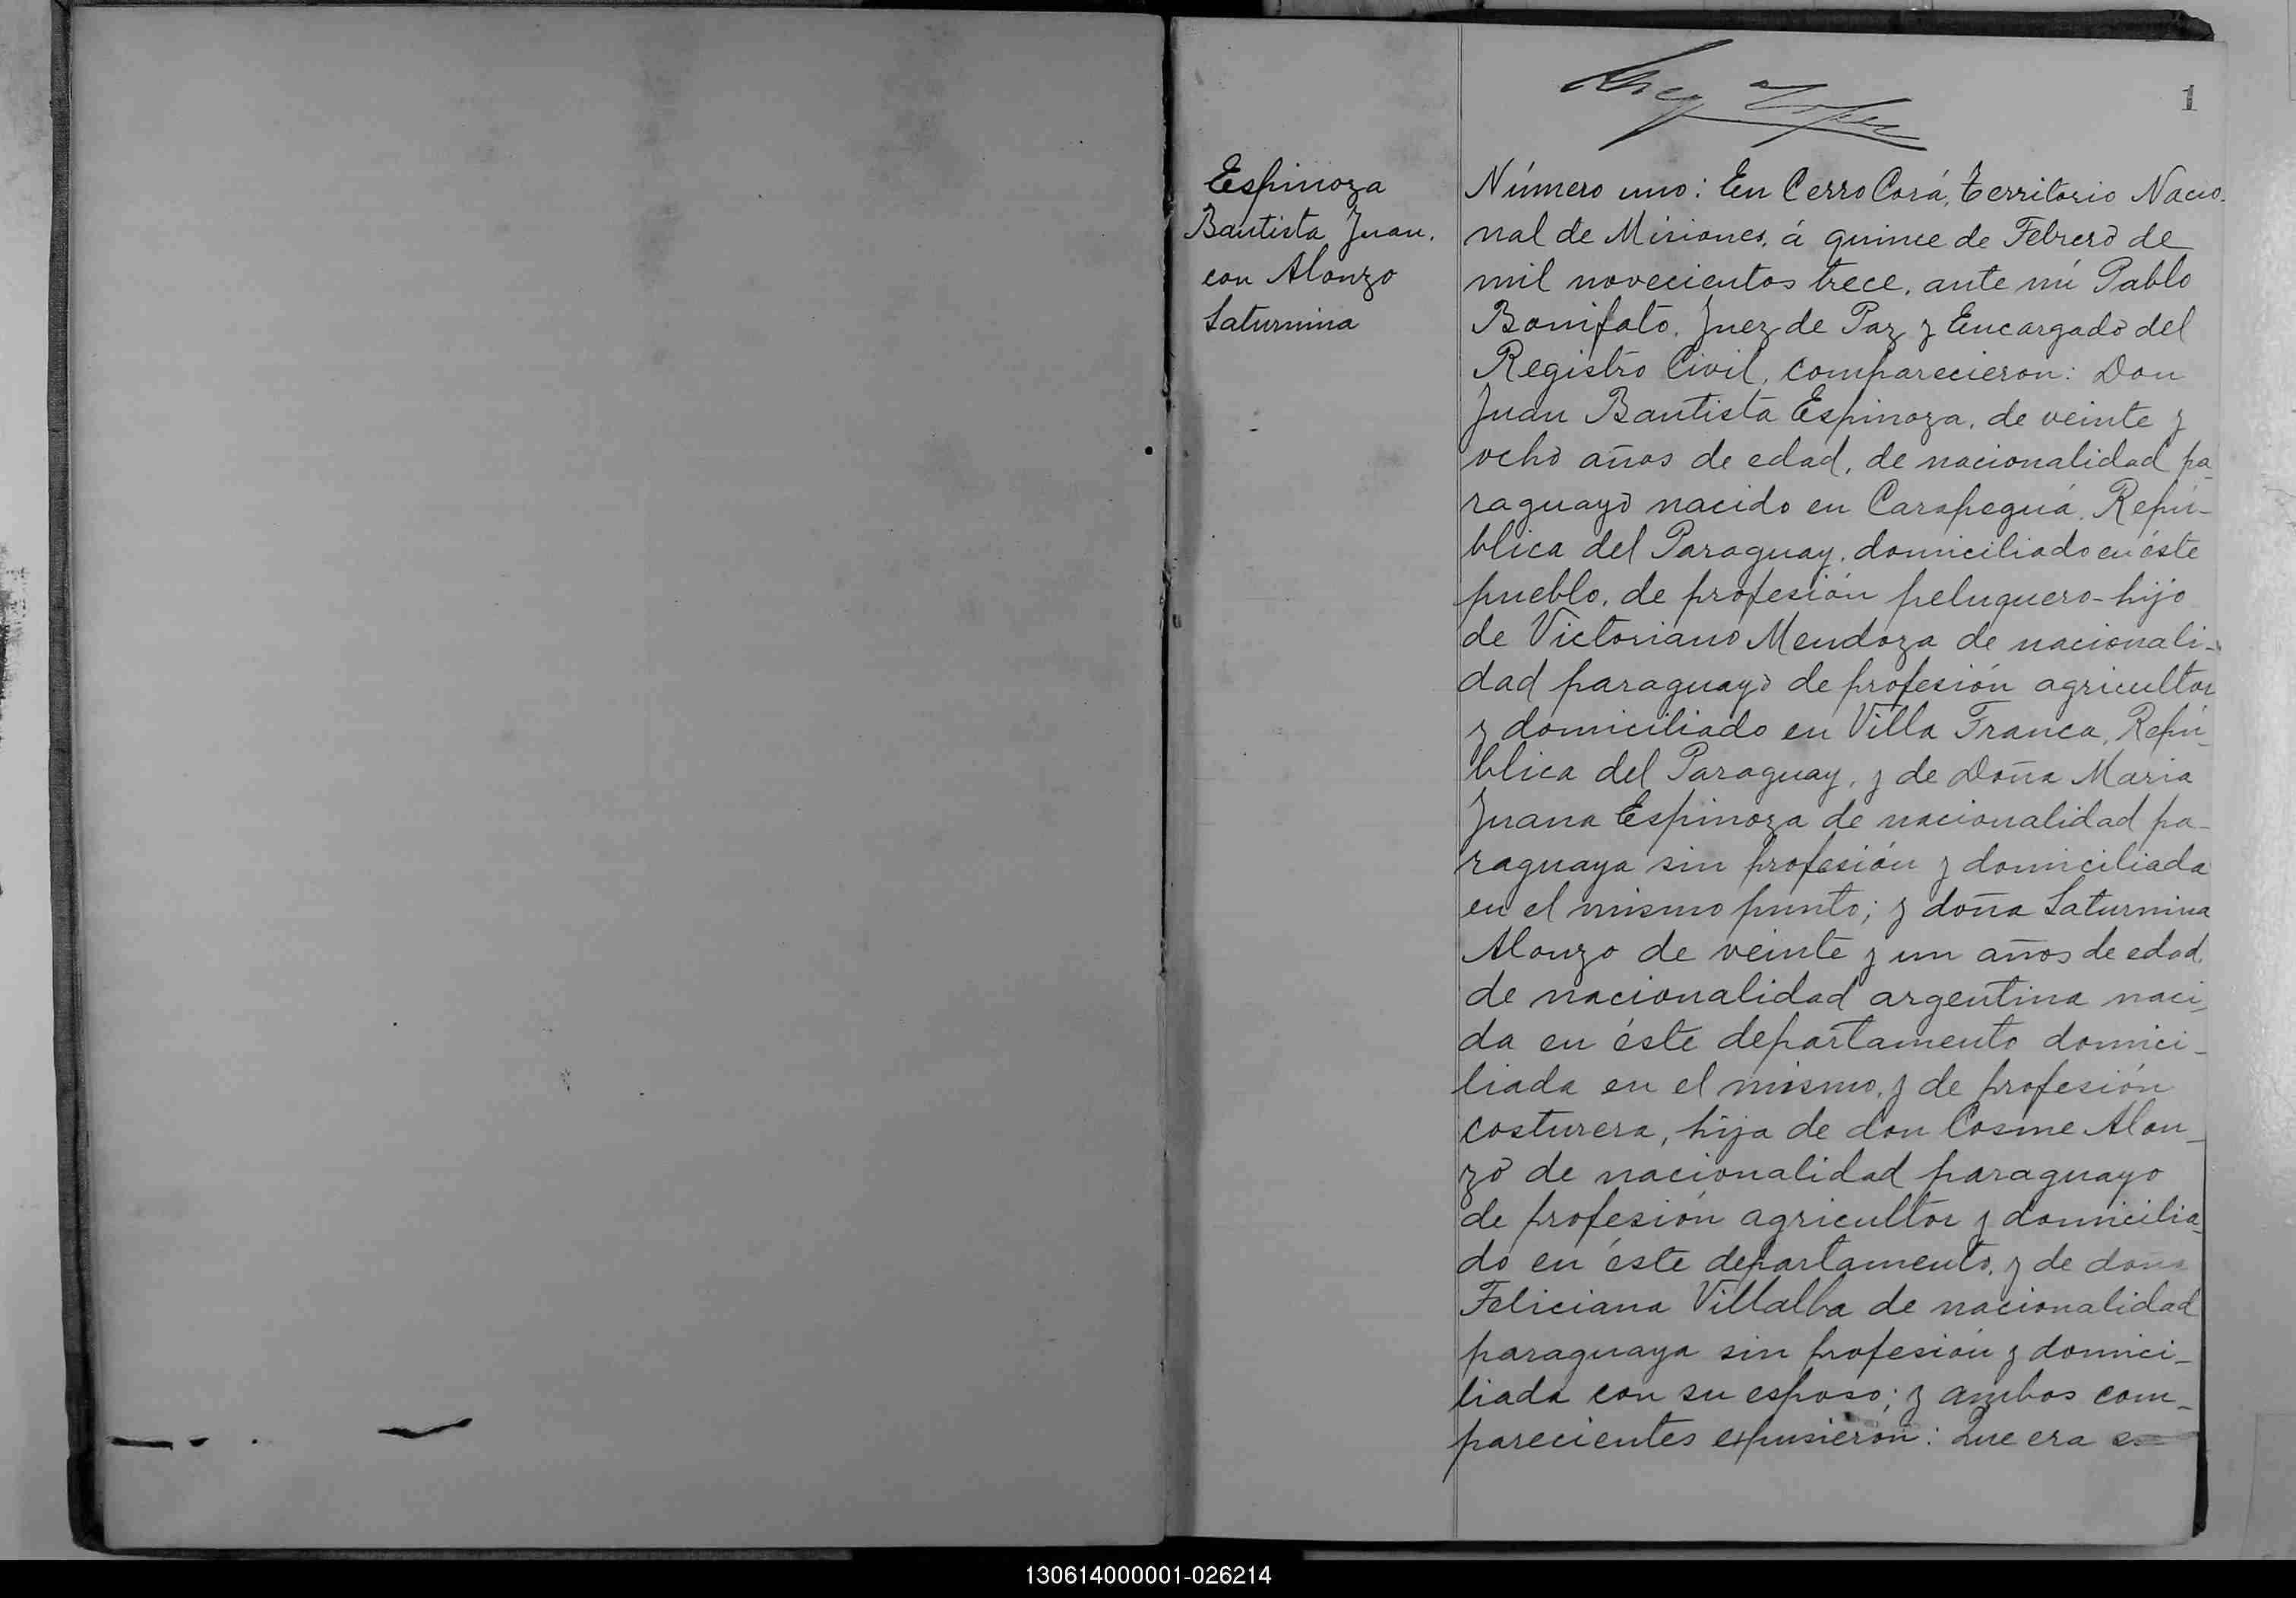 1
Espinoza
Bautista Juan.
con Alonzo
Saturnina
Número uno: En Cerro Corá, territorio Nacio-
nal de Misiones, á quince de Febrero de
mil novecientos trece, ante mí Pablo
Bonifato, Juez de Paz y Encargado del
Registro Civil, comparecieron: Don
Juan Bautista Espinoza, de veinte y
ocho años de edad, de nacionalidad pa-
raguayo nacido en Carapeguá, Repú-
blica del Paraguay, domiciliado en éste
pueblo, de profesión peluquero-hijo
de Victoriano Mendoza de nacionali-
dad paraguayo de profesión agricultor
y domiciliado en Villa Franca, Repú-
blica del Paraguay, y de Doña Maria
Juana Espinoza de nacionalidad pa-
raguaya sin profesión y domiciliada
en el mismo punto; y doña Saturnina
Alonzo de veinte y un años de edad,
de nacionalidad argentina naci-
da en éste departamento domici-
liada en el mismo, y de profesión
costurera, hija de don Cosme Alon-
zo de nacionalidad paraguayo
de profesión agricultor y domicilia-
do en éste departamento, y de doña
Feliciana Villalba de nacionalidad
paraguaya sin profesión y domici-
liada con su esposo; y ambos com-
parecientes expusieron: Que era
130614000001-026214